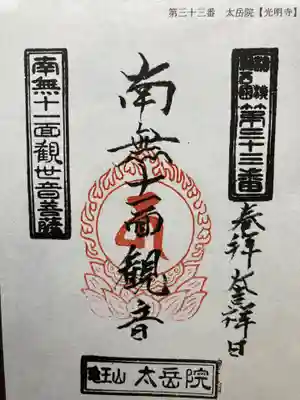 第三十三番 太岳院【光明寺】
第三十三番
奉拝
南無十一面観音
南無十一面観世音菩薩
亀王山 太岳院